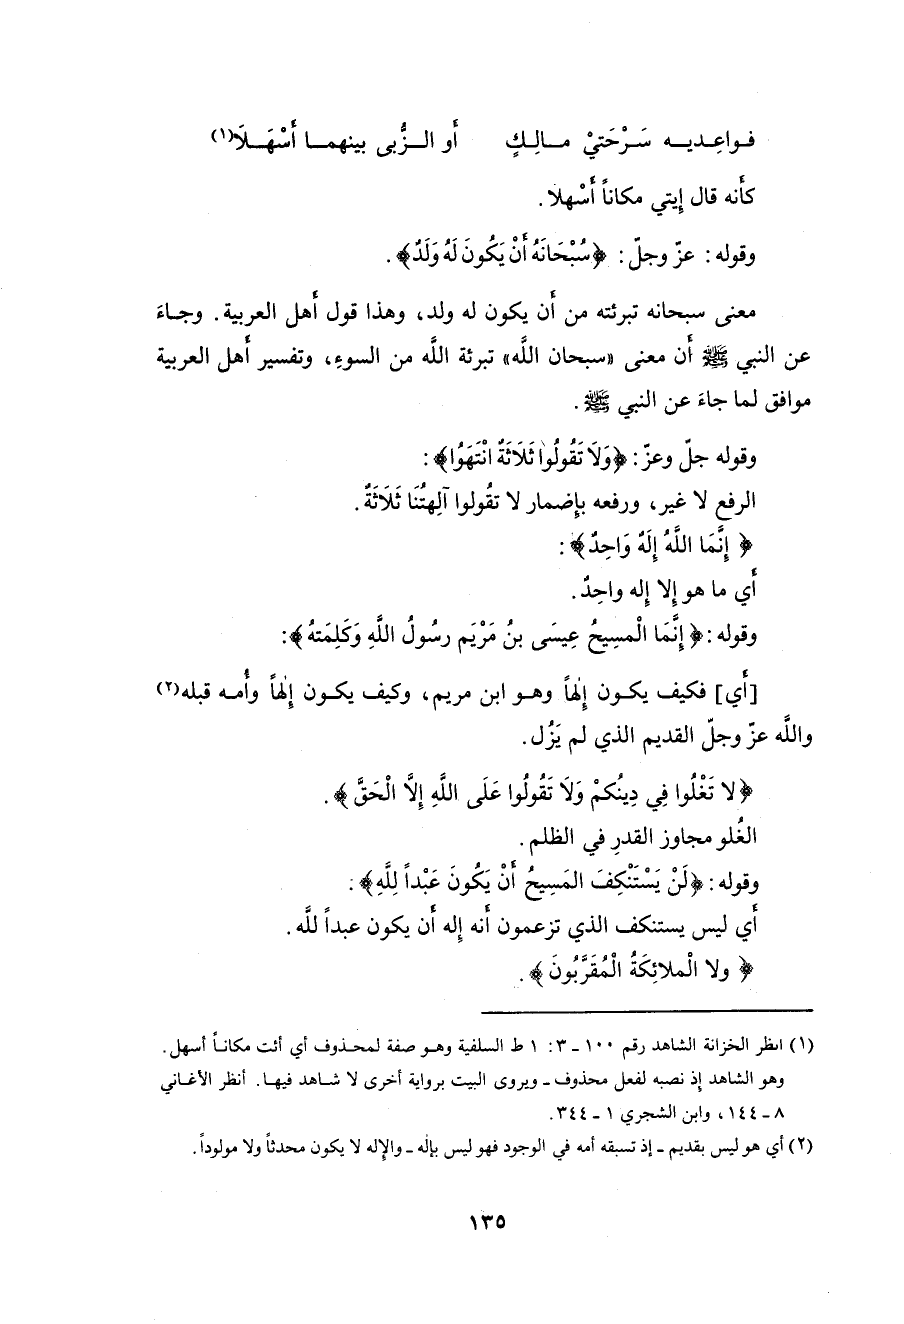 فواعديه سَرْحَتيْ مالِكٍ أَو الزُّبى بينهما أَسْهَلَا(١)
كأَنه قال إيتي مكاناً أَسْهلا.
وقوله: عزّ وجلّ: ﴿سُبْحَانَهُ أَنْ يَكُونَ لَهُ وَلَدٌ﴾.
معنى سبحانه تبرئته من أَن يكون له ولد، وهذا قول أَهل العربية. وجاءَ
عن النبي ﷺ أَن معنى «سبحان اللَّه» تبرئة اللَّه من السوءِ، وتفسير أَهل العربية
موافق لما جاءَ عن النبي ﷺ.
وقوله جلّ وعزّ: ﴿وَلَا تَقُولُوا ثَلَاثَةٌ انْتَهَوْا﴾:
الرفع لا غير، ورفعه بإضمار لا تقُولوا آلِهتُنَا ثَلَاثَةٌ.
﴿ إِنَّمَا اللَّهُ إِلَهٌ وَاحِدٌ﴾:
أَي ما هو إلا إله واحِدٌ.
وقوله: ﴿ إِنَّمَا الْمسِيحُ عِيسَى بنُ مَرْيَم رسُولُ اللَّهِ وَكَلِمَتهُ ﴾:
[أَي] فكيف يكون إِلٰهاً وهو ابن مريم، وكيف يكون إِلٰهاً وأُمه قبله(٢)
واللَّه عزّ وجلّ القديم الذي لم يَزُل.
﴿لا تَغْلُوا فِي دِينُكمْ وَلَا تَقُولُوا عَلَى اللَّهِ إِلَّا الْحَقَّ ﴾.
الغُلو مجاوز القدرِ في الظلم.
وقوله: ﴿لَنْ يَسْتَنْكِفَ المَسِيحُ أَنْ يَكُونَ عَبْداً لِلَّهِ﴾:
أَي ليس يستنكف الذي تزعمون أَنه إله أَن يكون عبداً للَّه.
﴿ ولا الْملائِكَةُ الْمُقَرَّبُونَ ﴾.
(١) انظر الخزانة الشاهد رقم ١٠٠ ـ ٣: ١ ط السلفية وهو صفة لمحذوف أي أئت مكاناً أسهل.
وهو الشاهد إذ نصبه لفعل محذوف ـ ويروى البيت برواية أخرى لا شاهد فيها. أنظر الأغاني
٨ ـ ١٤٤، وابن الشجري ١ ـ ٣٤٤.
(٢) أي هو ليس بقديم ـ إذ تسبقه أمه في الوجود فهو ليس بإلٰه ـ والإله لا يكون محدثاً ولا مولوداً.
١٣٥